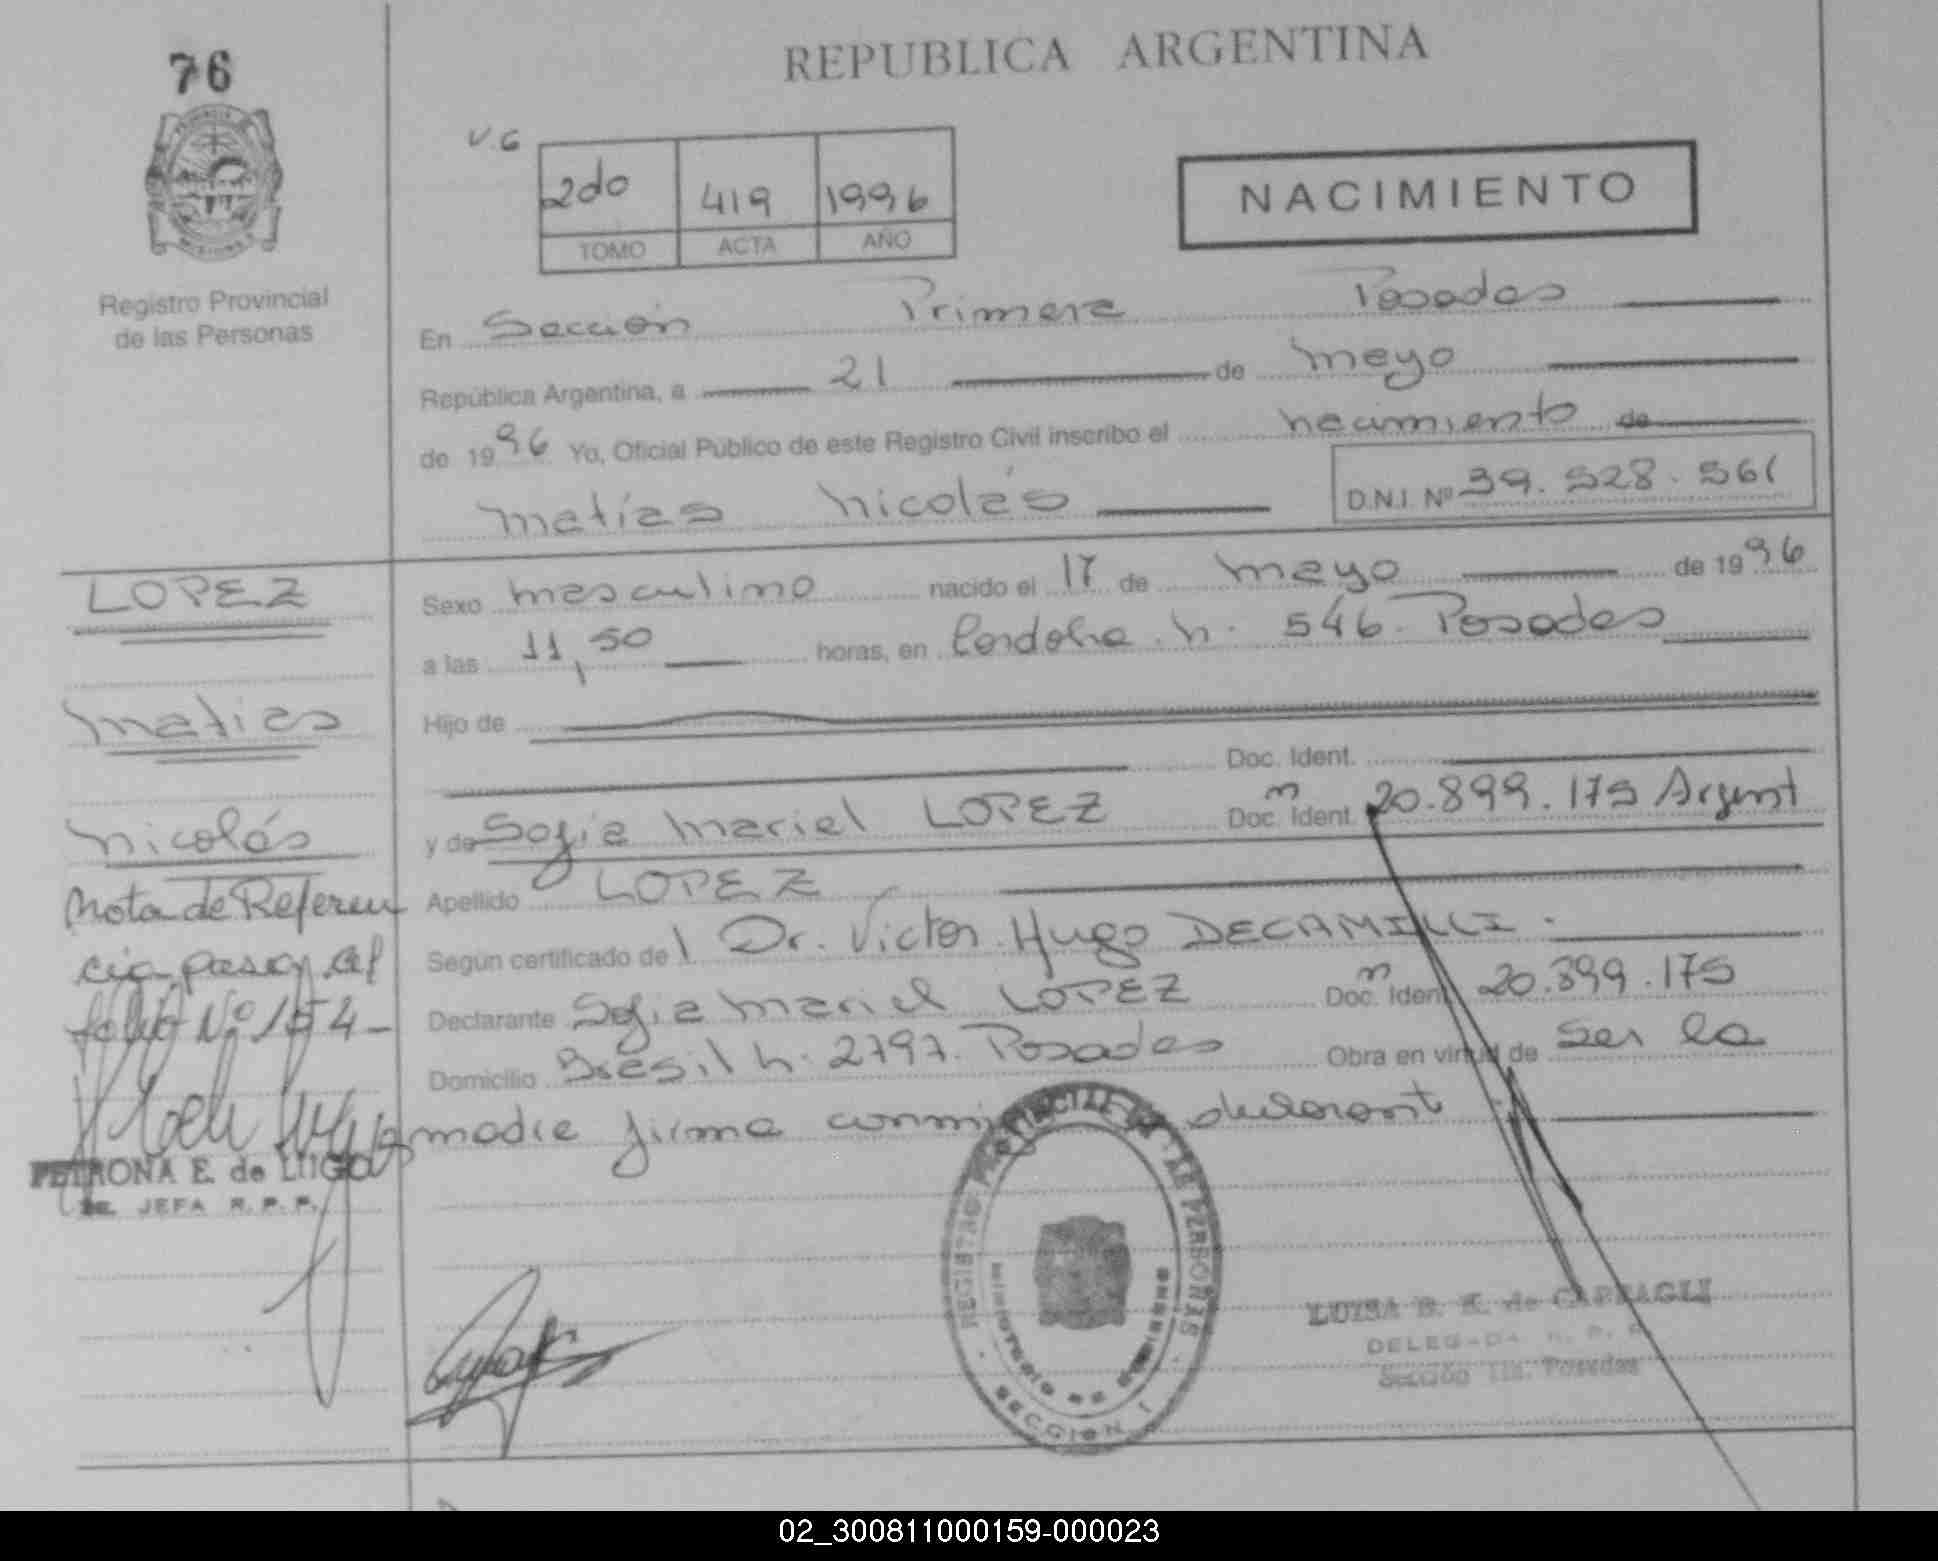 76
REPUBLICA ARGENTINA
V.G
2do 419 1996
TOMO ACTA AÑO
NACIMIENTO
Registro Provincial
de las Personas
En Sección Primera Posadas
República Argentina, a 21 de mayo
de 1996 Yo, Oficial Público de este Registro Civil inscribo el nacimiento de
Matías Nicolás D.N.I. Nº 39.528.561
LOPEZ
Sexo masculino nacido el 17 de mayo de 1996
a las 11,50 horas, en Cordoba n. 546. Posadas
Matías
Hijo de
Doc. Ident.
Nicolás
y de Sofia Mariel LOPEZ Doc. Ident. m 20.899.175 Argent
Nota de Referen
cia pasa al
folio Nº 154-
Apellido LOPEZ
Según certificado del Dr. Victor Hugo DECAMILLI.
Declarante Sofia Mariel LOPEZ Doc. Ident. m 20.899.175
Domicilio Brasil n. 2797. Posadas Obra en virtud de ser la
madre firma conmigo declarant
PETRONA E. de LUGO
JEFA R. P. P.
REGISTRO PROVINCIAL DE LAS PERSONAS
MINISTERIO DE GOBIERNO
SECCION 1
LUISA de
DELEGADA R. P. P.
Sección 1ra. Posadas
02_300811000159-000023